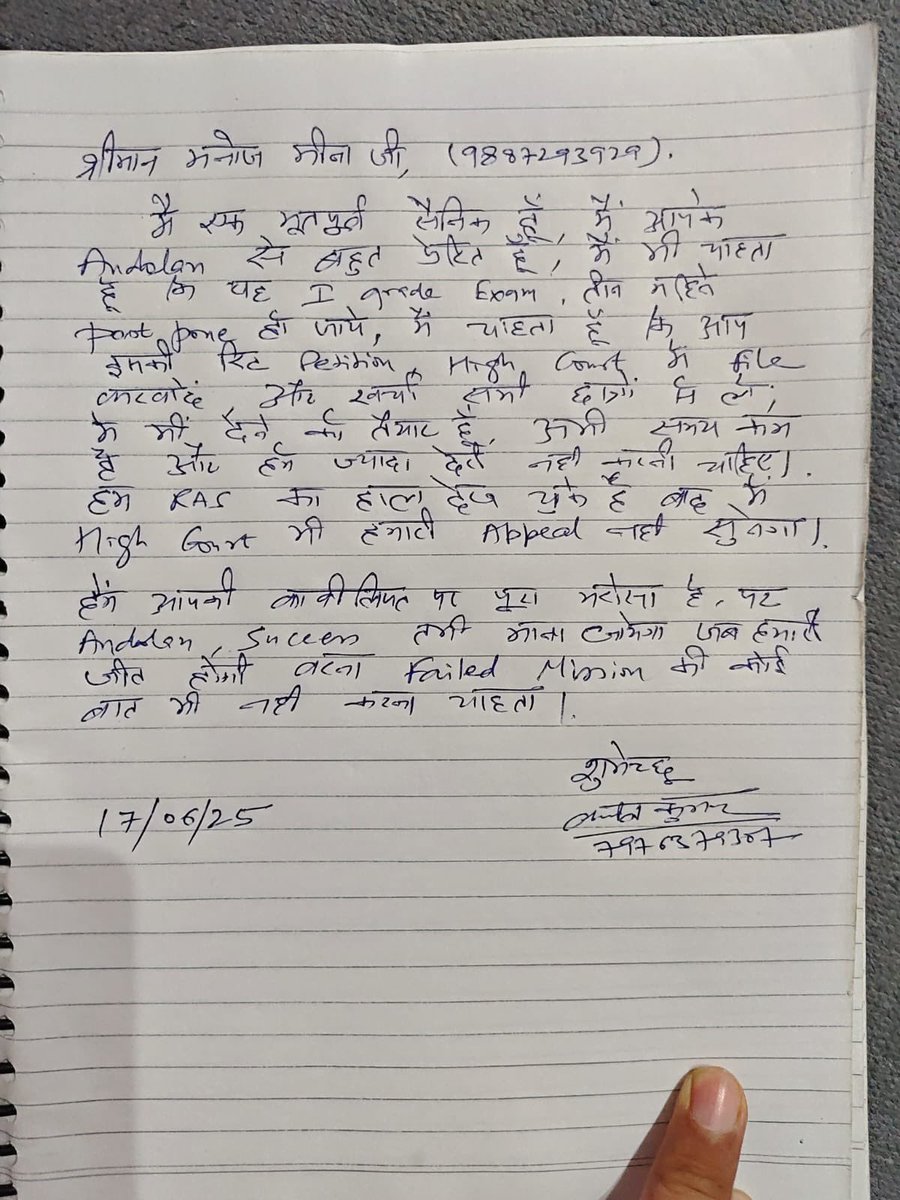 श्रीमान मनोज मीना जी, (9887293929).
मै एक भूतपूर्व सैनिक हूँ, मैं आपके
Andolan से बहुत प्रेरित हूँ, मैं भी चाहता
हूँ कि यह I grade Exam, तीन महिने
post pone हो जाये, मैं चाहता हूँ कि आप
इसकी रिट Petition, High Court में file
करवादें और खर्चा सभी छात्रों से लें,
मै भी देने को तैयार हूँ, अभी समय कम
है और हमें ज्यादा देरी नही करनी चाहिए।
हम RAS का हाल देख चुके है बाद में
High Court भी हमारी Appeal नही सुनेगा।
हमें आपकी काबीलियत पर पूरा भरोसा है, पर
Andolan, Success तभी माना जायेगा जब हमारी
जीत होगी वरना Failed Mission की कोई
बात भी नही करना चाहता।
शुभेच्छू
17/06/25
कुमार
7976379307